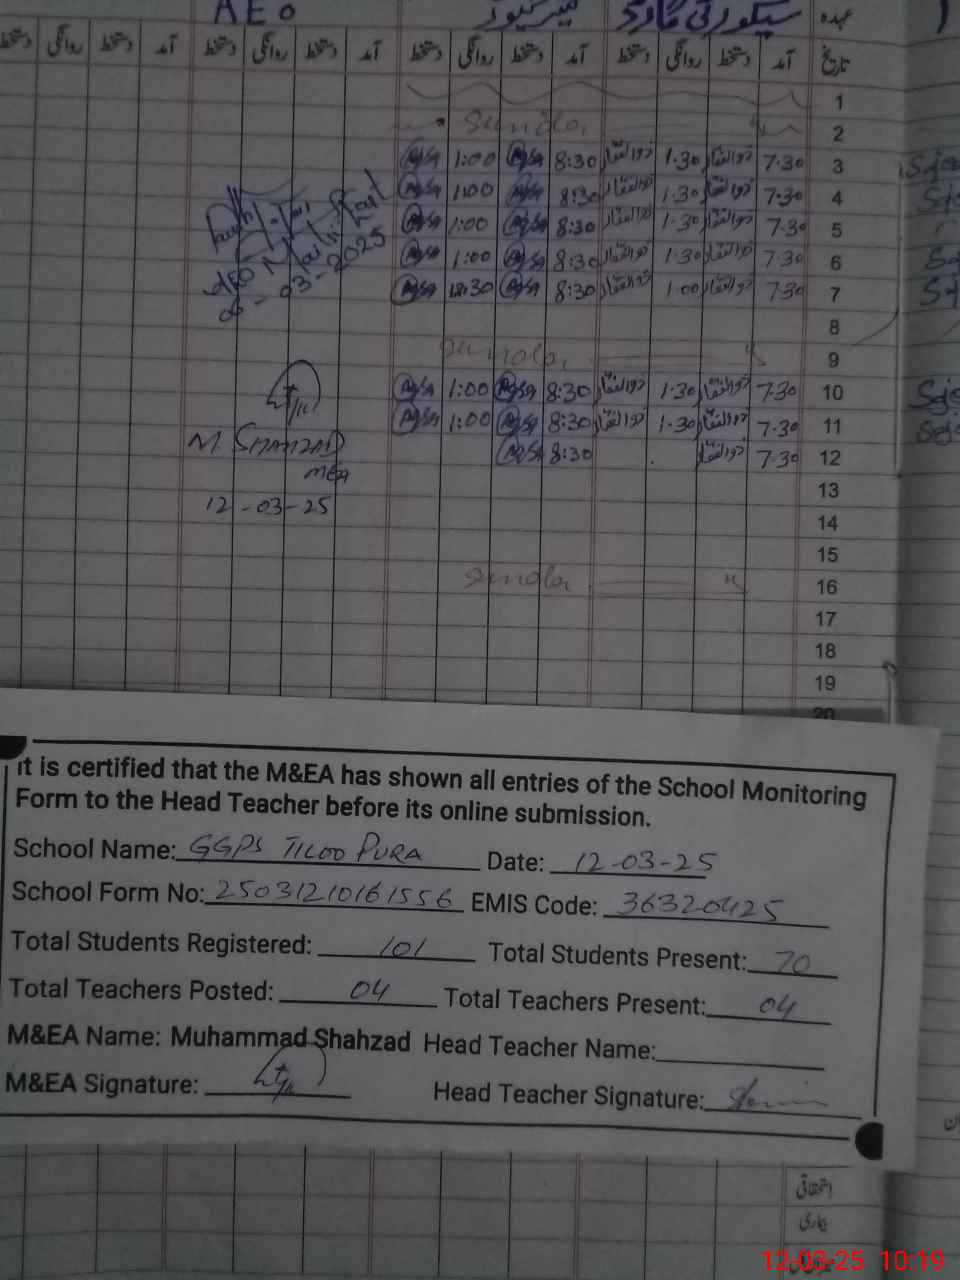 AEO
سیکورٹی گارڈ
عہدہ
تاریخ آمد دستخط روانگی دستخط آمد دستخط روانگی دستخط آمد دستخط روانگی دستخط آمد دستخط روانگی دستخط
1
2 Sunday
3 7.30 ذوالفقار 1.30 ذوالفقار 8:30 1:00
4 7.30 ذوالفقار 1.30 ذوالفقار 8:30 1:00
5 7.30 ذوالفقار 1.30 ذوالفقار 8:30 1:00
6 7.30 ذوالفقار 1.30 ذوالفقار 8:30 1:00
7 7.30 ذوالفقار 1.00 ذوالفقار 8:30
06-03-2025
8
9 Sunday
10 7.30 ذوالفقار 1.30 ذوالفقار 8:30 1:00
11 7.30 ذوالفقار 1.30 ذوالفقار 8:30 1:00
12 7.30 ذوالفقار 8:30
M. SHAHZAD
MEA
12-03-25
13
14
15
16 Sunday
17
18
19
20
It is certified that the M&EA has shown all entries of the School Monitoring
Form to the Head Teacher before its online submission.
School Name: GGPS TILOO PURA Date: 12-03-25
School Form No: 25031210161556 EMIS Code: 36320425
Total Students Registered: 101 Total Students Present: 70
Total Teachers Posted: 04 Total Teachers Present: 04
M&EA Name: Muhammad Shahzad Head Teacher Name:
M&EA Signature: Head Teacher Signature:
اتفاقی
بیماری
12-03-25 10:19